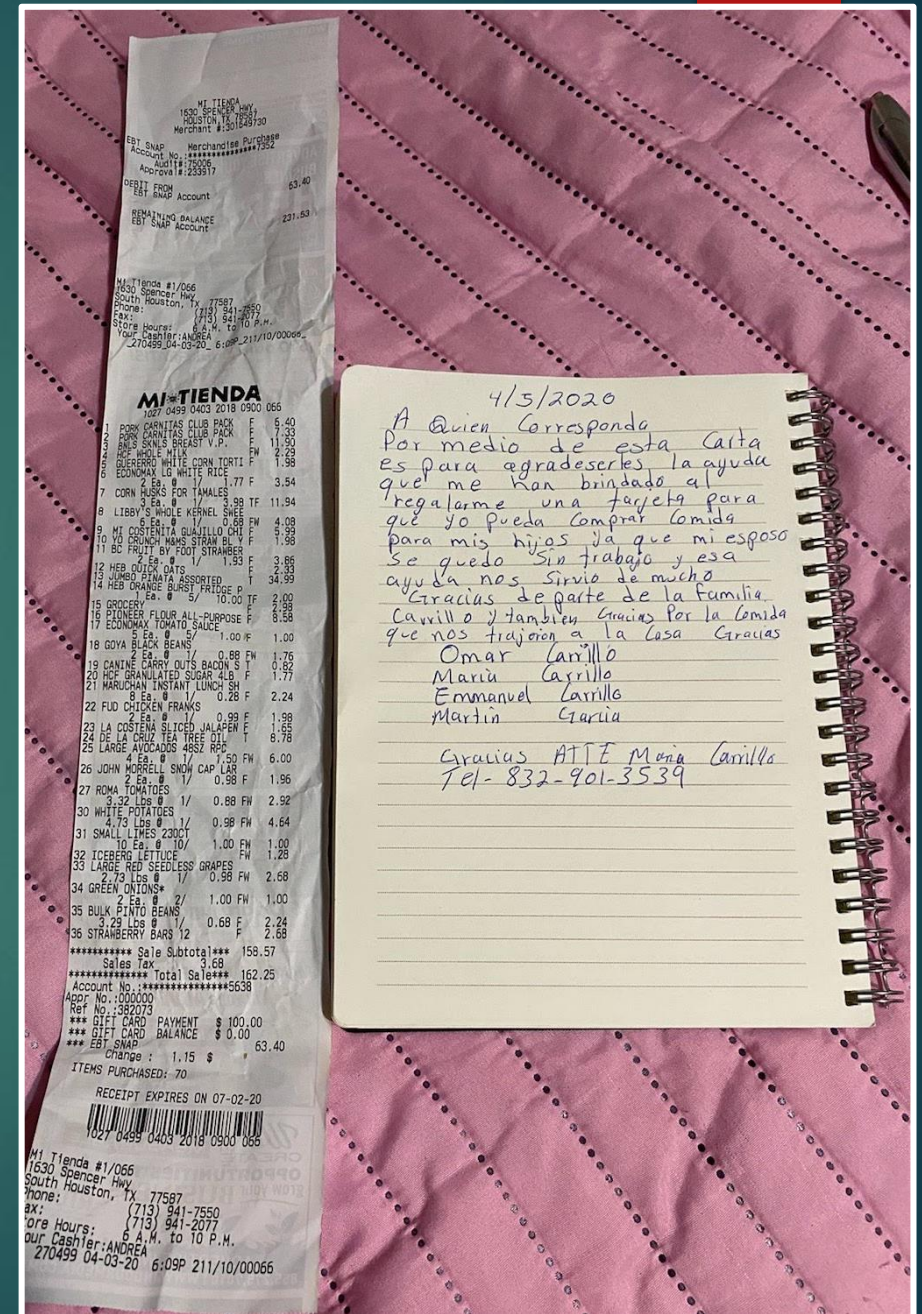 MI TIENDA
1630 SPENCER HWY
HOUSTON, TX 78587
Merchant #:301649730
EBT SNAP Merchandise Purchase
Account No.:***************7352
Audit#:75006
Approval#:233917
DEBIT FROM
EBT SNAP Account 63.40
REMAINING BALANCE
EBT SNAP Account 231.53
Mi Tienda #1/066
1630 Spencer Hwy
South Houston, TX 77587
Phone: (713) 941-7550
Fax: (713) 941-2077
Store Hours: 6 A.M. to 10 P.M.
Your Cashier:ANDREA
_270499_04-03-20_ 6:09P_211/10/00066_
MI TIENDA
1027 0499 0403 2018 0900 066
1 PORK CARNITAS CLUB PACK F 6.40
2 PORK CARNITAS CLUB PACK F 7.33
3 BNLS SKNLS BREAST V.P. F 11.90
4 HCF WHOLE MILK FW 2.29
5 GUERERRO WHITE CORN TORTI F 1.98
6 ECONOMAX LG WHITE RICE
2 Ea. @ 1/ 1.77 F 3.54
7 CORN HUSKS FOR TAMALES
3 Ea. @ 1/ 3.98 TF 11.94
8 LIBBY'S WHOLE KERNEL SWEE
6 Ea. @ 1/ 0.68 FW 4.08
9 MI COSTENITA GUAJILLO CHI F 5.99
10 YO CRUNCH M&MS STRAW BL Y F 1.98
11 BC FRUIT BY FOOT STRAWBER
2 Ea. @ 1/ 1.93 F 3.86
12 HEB QUICK OATS F 2.33
13 JUMBO PINATA ASSORTED T 34.99
14 HEB ORANGE BURST FRIDGE P
1 Ea. @ 5/ 10.00 TF 2.00
15 GROCERY F 2.98
16 PIONEER FLOUR ALL-PURPOSE F 8.58
17 ECONOMAX TOMATO SAUCE
5 Ea. @ 5/ 1.00 F 1.00
18 GOYA BLACK BEANS
2 Ea. @ 1/ 0.88 FW 1.76
19 CANINE CARRY OUTS BACON S T 0.82
20 HCF GRANULATED SUGAR 4LB F 1.77
21 MARUCHAN INSTANT LUNCH SH
8 Ea. @ 1/ 0.28 F 2.24
22 FUD CHICKEN FRANKS
2 Ea. @ 1/ 0.99 F 1.98
23 LA COSTENA SLICED JALAPEN F 1.65
24 DE LA CRUZ TEA TREE OIL T 8.78
25 LARGE AVOCADOS 48SZ RPC
4 Ea. @ 1/ 1.50 FW 6.00
26 JOHN MORRELL SNOW CAP LAR
2 Ea. @ 1/ 0.98 F 1.96
27 ROMA TOMATOES
3.32 Lbs @ 1/ 0.88 FW 2.92
30 WHITE POTATOES
4.73 Lbs @ 1/ 0.98 FW 4.64
31 SMALL LIMES 230CT
10 Ea. @ 10/ 1.00 FW 1.00
32 ICEBERG LETTUCE FW 1.28
33 LARGE RED SEEDLESS GRAPES
2.73 Lbs @ 1/ 0.98 FW 2.68
34 GREEN ONIONS*
2 Ea. @ 2/ 1.00 FW 1.00
35 BULK PINTO BEANS
3.29 Lbs @ 1/ 0.68 F 2.24
36 STRAWBERRY BARS 12 F 2.68
*********** Sale Subtotal*** 158.57
Sales Tax 3.68
************* Total Sale*** 162.25
Account No.:***************5638
Appr No.:000000
Ref No.:382073
*** GIFT CARD PAYMENT $ 100.00
*** GIFT CARD BALANCE $ 0.00
*** EBT SNAP 63.40
Change : 1.15 $
ITEMS PURCHASED: 70
RECEIPT EXPIRES ON 07-02-20
1027 0499 0403 2018 0900 066
Mi Tienda #1/066
1630 Spencer Hwy
South Houston, TX 77587
Phone: (713) 941-7550
Fax: (713) 941-2077
Store Hours: 6 A.M. to 10 P.M.
Your Cashier:ANDREA
270499 04-03-20 6:09P 211/10/00066
4/5/2020
A Quien Corresponda
Por medio de esta Carta
es para agradeserles la ayuda
que me han brindado al
regalarme una tarjeta para
que yo pueda Comprar Comida
para mis hijos ya que mi esposo
se quedo Sin trabajo y esa
ayuda nos sirvio de mucho
Gracias de parte de la familia
Carrillo y tambien Gracias Por la Comida
que nos trajeron a la Casa Gracias
Omar Carrillo
Maria Carrillo
Emmanuel Carrillo
Martin Garcia
Gracias ATTE Maria Carrillo
Tel- 832-901-3539